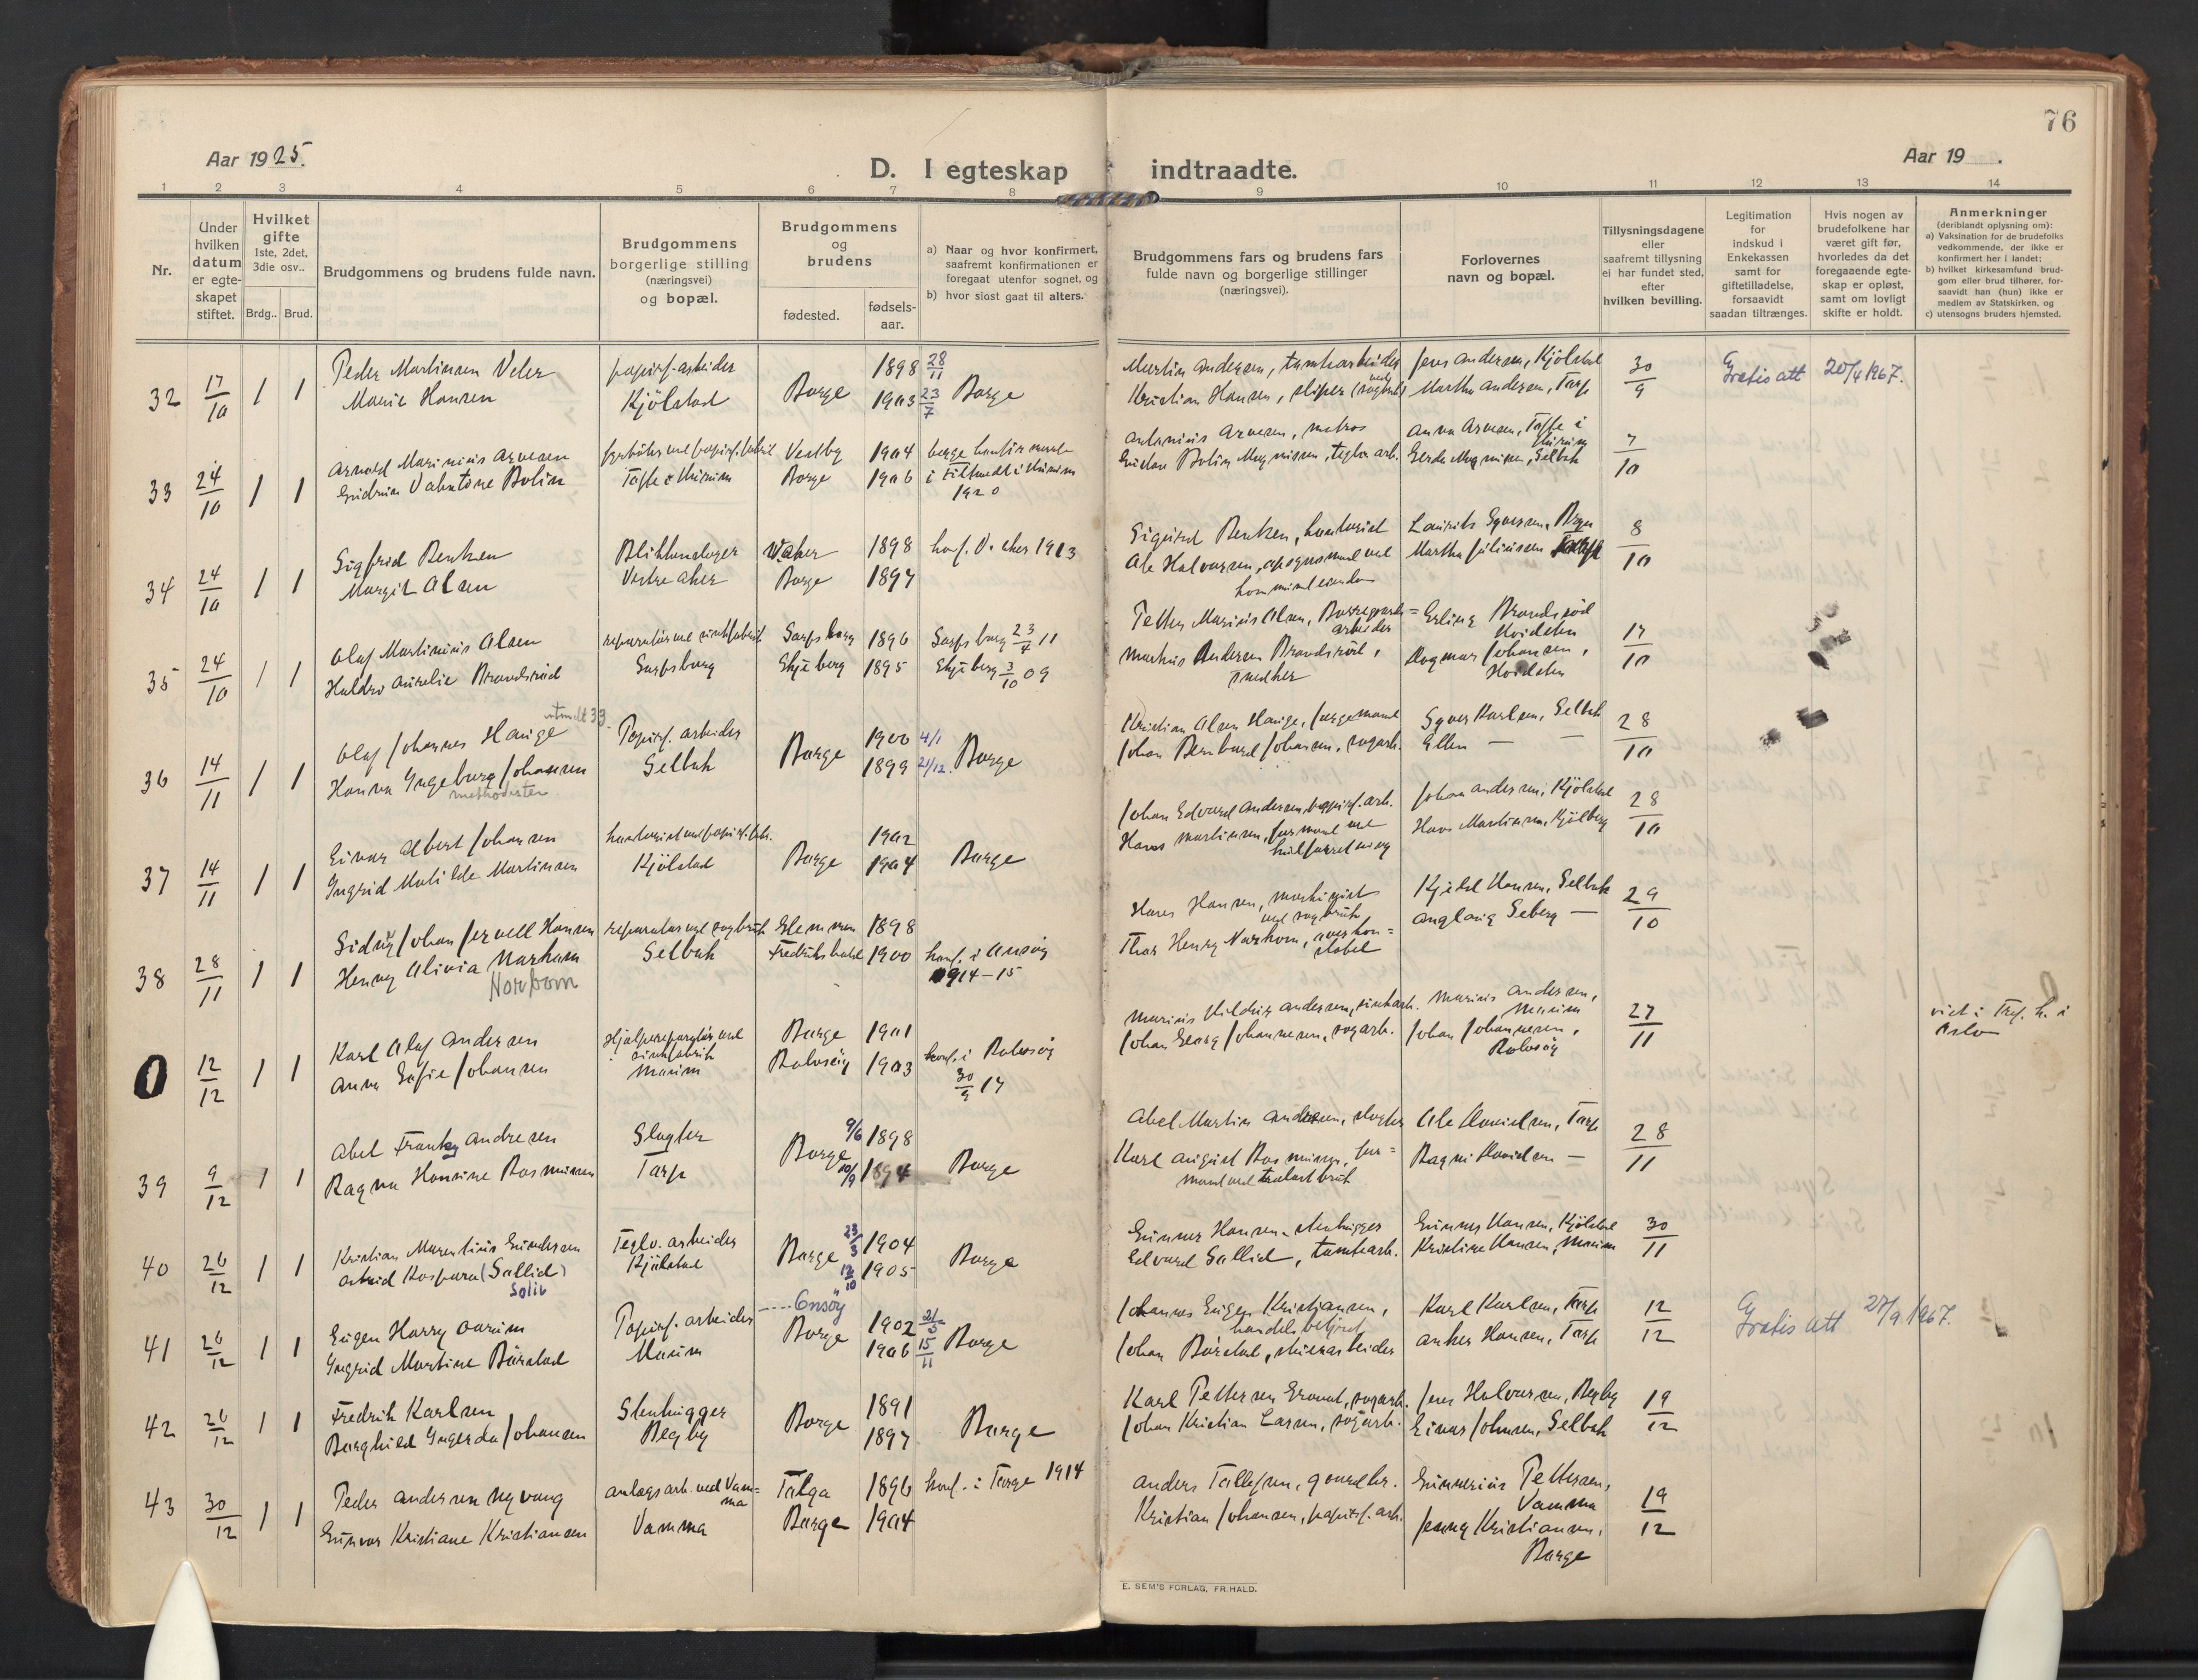 76
Aar 1925.
D. I egteskap indtraadte.
Aar 19 .
1 2 3 4 5 6 7 8 9 10 11 12 13 14
Nr.
Under hvilken datum er egte-skapet stiftet.
Hvilket gifte 1ste, 2det, 3die osv..
Brdg.. Brud.
Brudgommens og brudens fulde navn.
Brudgommens borgerlige stilling (næringsvei) og bopæl.
Brudgommens og brudens
fødested.
fødsels-aar.
a) Naar og hvor konfirmert, saafremt konfirmationen er foregaat utenfor sognet, og
b) hvor sidst gaat til alters.
Brudgommens fars og brudens fars fulde navn og borgerlige stillinger (næringsvei).
Forlovernes navn og bopæl.
Tillysningsdagene eller saafremt tillysning ei har fundet sted, efter hvilken bevilling.
Legitimation for indskud i Enkekassen samt for giftetilladelse, forsaavidt saadan tiltrænges.
Hvis nogen av brudefolkene har været gift før, hvorledes da det foregaaende egte-skap er opløst, samt om lovligt skifte er holdt.
Anmerkninger (deriblandt oplysning om):
a) Vaksination for de brudefolks vedkommende, der ikke er konfirmert her i landet;
b) hvilket kirkesamfund brud-gom eller brud tilhører, for-saavidt han (hun) ikke er medlem av Statskirken, og
c) utensogns bruders hjemsted.
32 17/10 1 1 Peder Martinsen Veler papirf.arbeider 1898 28/11 Martin Andersen, tomtearbeider Jens Andersen, Kjölstad 30/9 Gratis att 20/4 1967.
Marie Hansen Kjölstad Borge 1903 23/7 Borge Kristian Hansen, sliper Martha Andersen, Torp
33 24/10 1 1 Arnold Marinius Arvesen fyrböter ved papirf. Vestby 1904 Antonius Arvesen, matros Anna Arvesen, 7/10
Gudrun Valentine Bolin Borge 1906 Magnissen, Gerda Magnisen, Selbak
1920
34 24/10 1 1 Sigfrid Bentzen Blikkenslager V. Aker 1898 konf. V. Aker 1913 Sigurd Bentzen, kontorist 8/10
Margit Olsen Vestre Aker Borge 1897 Ole Halvorsen, Martha Juliussen
35 24/10 1 1 Olaf Martinius Olsen reparatör ved Sarpsborg 1896 Sarpsborg 23/4 11 Petter Marius Olsen, Borregaards= arbeider Erling Brandsröd 17/10
Huldra Aurelie Brandsröd Sarpsborg Skjeberg 1895 Skjeberg 3/10 09 Markus Andersen Brandsröd, snedker Dagmar Johansen,
36 14/11 1 1 Olaf Johannes Hauge utmeldt 33 Papirf. arbeider 1900 4/1 Kristian Olsen Hauge, Syver Karlsen, Selbak 28/10
Hanna Ingeborg Johansen Selbak Borge 1899 21/12. Borge Johan Bernhard Johansen, sagarb. Ellen — —
methodisten
37 14/11 1 1 Einar Albert Johansen kontorist ved papirf. 1902 Johan Edvard Andersen, papirf. arb. Johan Andersen, Kjölstad 28/10
Ingrid Matilde Martinsen Kjölstad Borge 1904 Borge Hans Martinsen, formand ved kulforretning Hans Martinsen, Kjölberg
38 28/11 1 1 Johan Hansen reparatör ved sagbruk Glemmen 1898 Hans Hansen, maskinist ved sagbruk Kjeld Hansen, Selbak 29/10
Henny Olivia Norbom Selbak Fredrikshald 1900 konf. i Onsöy 1914-15 Thor Henry Norbom, overkon=stabel Anglaug Seberg —
Norbom
0 12/12 1 1 Karl Olaf Andersen Hjelpereparatör ved Borge 1901 Marius Hilder Andersen, Marius Andersen, Moum 27/11 viet i Tref. k. i Oslo
Anna Sofie Johansen Moum Rolvsöy 1903 konf. i Rolvsöy 30/9 17 Johan Georg Johannesen, sagarb. Johan Johannesen, Rolvsöy
39 9/12 1 1 Abel Franky Andresen Slagter 9/6 1898 Abel Martin Andresen, slagter Ole Danielsen, Torp 28/11
Ragna Hansine Rasmussen Torp Borge 10/9 1894 Borge Karl August Rasmussen, for=mand ved trælastbruk Ragni Danielsen —
40 26/12 1 1 Kristian Marentius Gundersen Teglv. arbeider 23/3 1904 Gunner Hansen, stenhugger Gunner Hansen, Kjölstad 30/11
Astrid Kaspara (Sollid) Kjölstad Borge 12/10 1905 Borge Edvard Sollid, tomtearb. Kristine Hansen, Moum
Soliv
41 26/12 1 1 Eugen Harry Aarum Papirf. arbeider Onsöy 1902 21/5 Johannes Eugen Kristiansen, handelsbetjent Karl Karlsen, Torp 12/12 Gratis att 27/9 1967.
Ingrid Martine Börstad Moum Borge 1906 15/11 Borge Johan Börstad, Anker Hansen, Torp
42 26/12 1 1 Fredrik Karlsen Stenhugger 1891 Karl Pettersen Granat, sagarb. Jens Halvorsen, Begby 19/12
Borghild Ingerda Johansen Begby Borge 1897 Borge Johan Kristian Larsen, sagarb. Einar Johansen, Selbak
43 30/12 1 1 Peder Andersen Nyvang anlægsarb. ved Vam=ma Tolga 1896 konf. i 1914 Anders Tollefsen, gaardbr. Gunnerius Pettersen, Vamma 19/12
Gunvor Kristiane Kristiansen Vamma Borge 1904 Kristian Johansen, papirf. arb. Jenny Kristiansen, Borge
E. SEM'S FORLAG, FR.HALD.